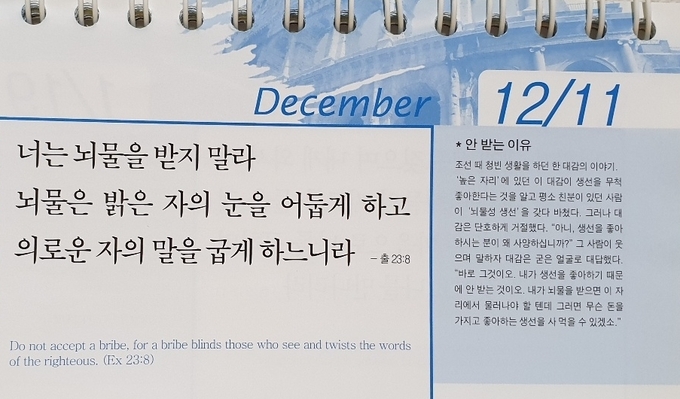 December
12/11
너는 뇌물을 받지 말라
뇌물은 밝은 자의 눈을 어둡게 하고
의로운 자의 말을 굽게 하느니라 - 출 23:8
Do not accept a bribe, for a bribe blinds those who see and twists the words
of the righteous. (Ex 23:8)
* 안 받는 이유
조선 때 청빈 생활을 하던 한 대감의 이야기.
'높은 자리'에 있던 이 대감이 생선을 무척
좋아한다는 것을 알고 평소 친분이 있던 사람
이 '뇌물성 생선'을 갖다 바쳤다. 그러나 대
감은 단호하게 거절했다. "아니, 생선을 좋아
하시는 분이 왜 사양하십니까?" 그 사람이 웃
으며 말하자 대감은 굳은 얼굴로 대답했다.
"바로 그것이오. 내가 생선을 좋아하기 때문
에 안 받는 것이오. 내가 뇌물을 받으면 이 자
리에서 물러나야 할 텐데 그러면 무슨 돈을
가지고 좋아하는 생선을 사 먹을 수 있겠소."